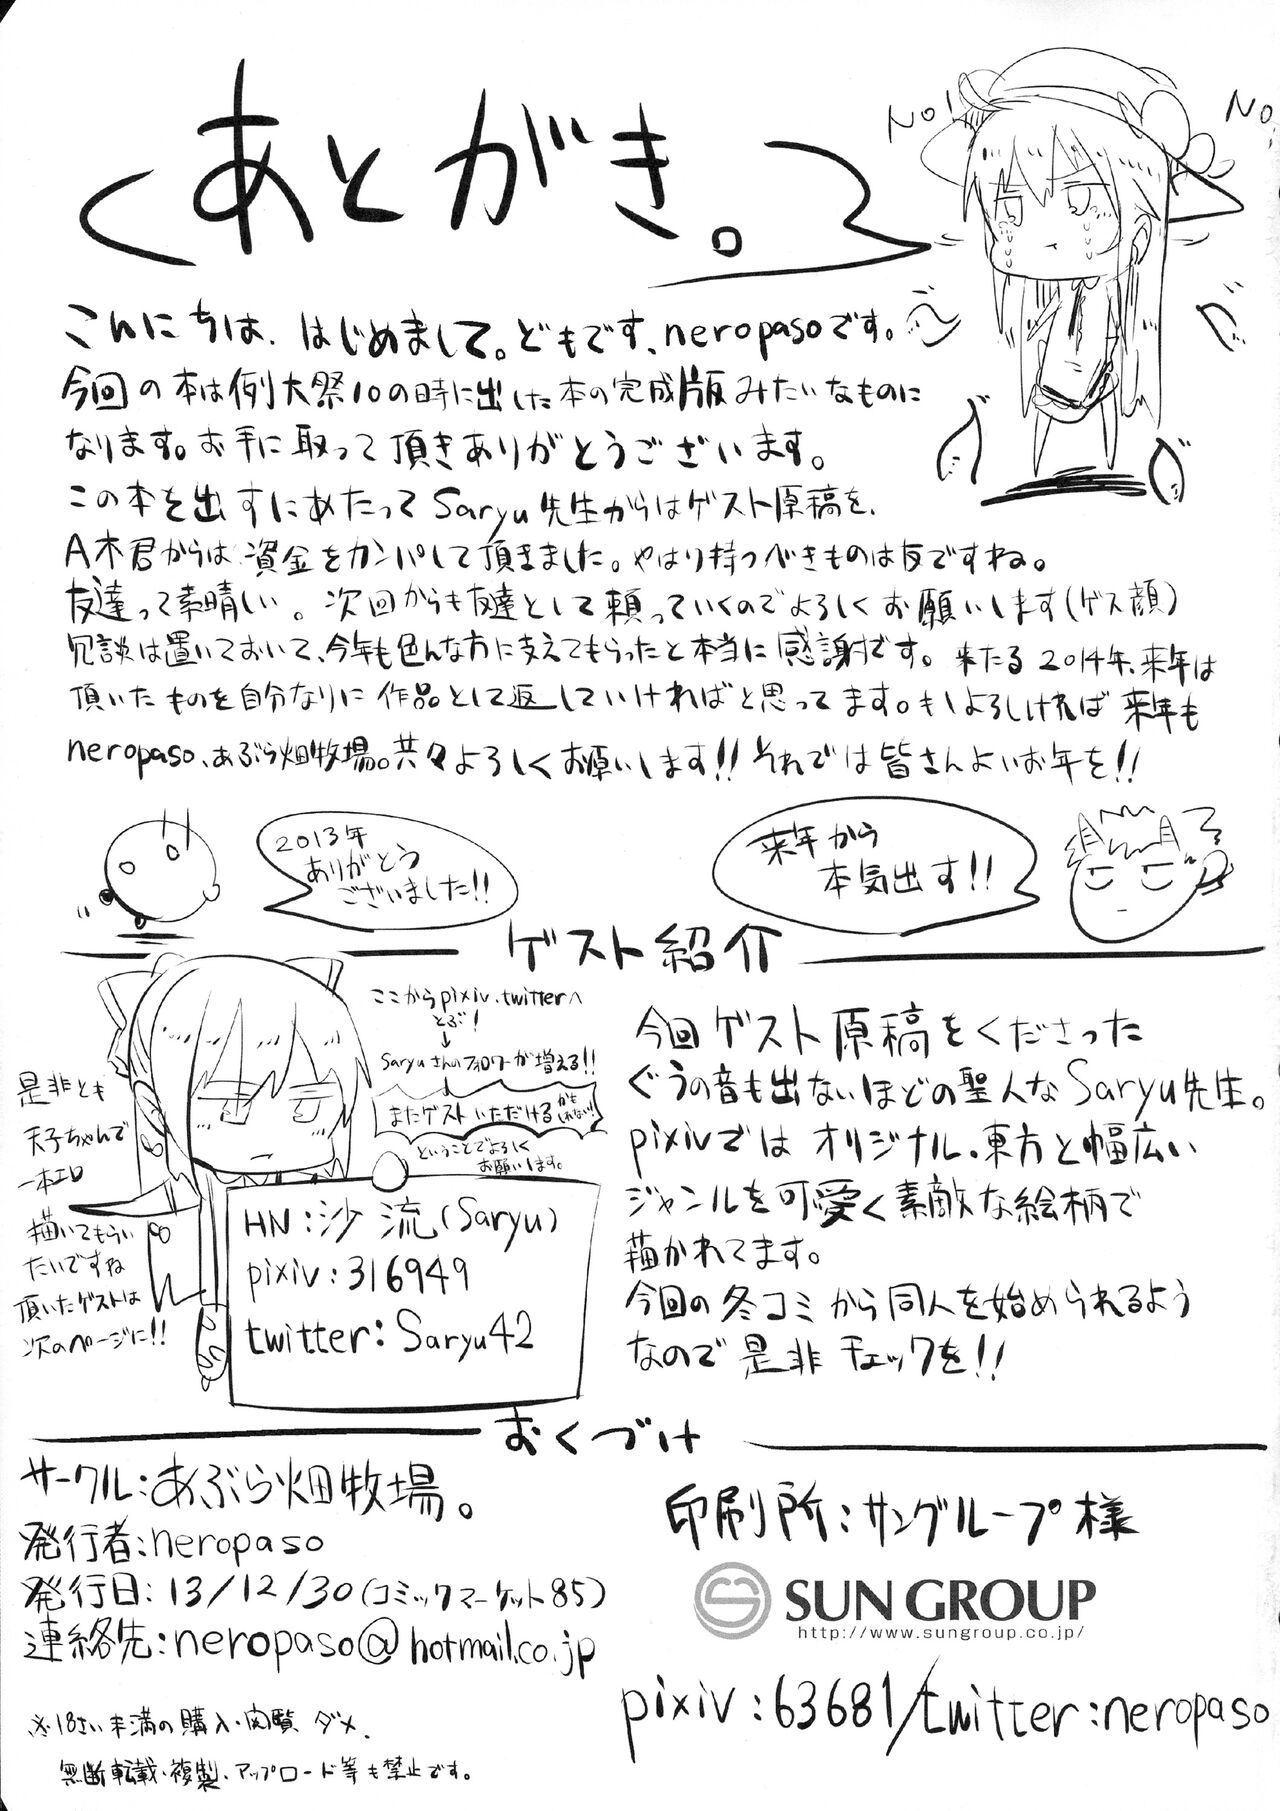 あとがき。
No!
No!
こんにちは、はじめまして。どもです、neropasoです。
今回の本は例大祭10の時に出した本の完成版みたいなものに
なります。お手に取って頂きありがとうございます。
この本を出すにあたってSaryu先生からはゲスト原稿を、
A木君からは資金をカンパして頂きました。やはり持つべきものは友ですね。
友達って素晴しい。次回からも友達として頼っていくのでよろしくお願いします(ゲス顔)
冗談は置いておいて、今年も色んな方に支えてもらったと本当に感謝です。来たる2014年、来年は
頂いたものを自分なりに作品として返していければと思ってます。もしよろしければ来年も
neropaso、あぶら畑牧場。共々よろしくお願いします!!それでは皆さんよいお年を!!
2013年
ありがとう
ございました!!
来年から
本気出す!!
ゲスト紹介
ここからpixiv、twitterへ
とぶ!
↓
Saryuさんのフォロワーが増える!!
またゲストいただけるかもしれない!!
ということでよろしく
お願いします。
是非とも
天子ちゃんで
一本エロ
描いてもらい
たいですね
頂いたゲストは
次のページに!!
HN:沙流(Saryu)
pixiv:316949
twitter:Saryu42
今回ゲスト原稿をくださった
ぐうの音も出ないほどの聖人なSaryu先生。
pixivではオリジナル、東方と幅広い
ジャンルを可愛く素敵な絵柄で
描かれてます。
今回の冬コミから同人を始められるよう
なので是非チェックを!!
おくづけ
サークル:あぶら畑牧場。
発行者:neropaso
発行日:13/12/30(コミックマーケット85)
連絡先:neropaso@hotmail.co.jp
※18さい未満の購入・閲覧ダメ、
無断転載・複製、アップロード等も禁止です。
印刷所:サングループ様
SUN GROUP
http://www.sungroup.co.jp/
pixiv:63681/twitter:neropaso